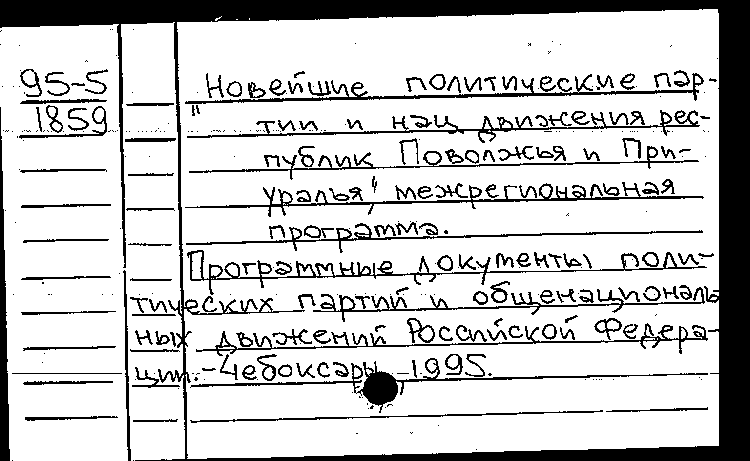 95-5
1859
"Новейшие политические пар-
тии и нац. движения рес-
публик Поволжья и При-
уралья", межрегиональная
программа.
Программные документы поли-
тических партий и общенациональ
ных движений Российской Федера-
ции.-Чебоксары, 1995.